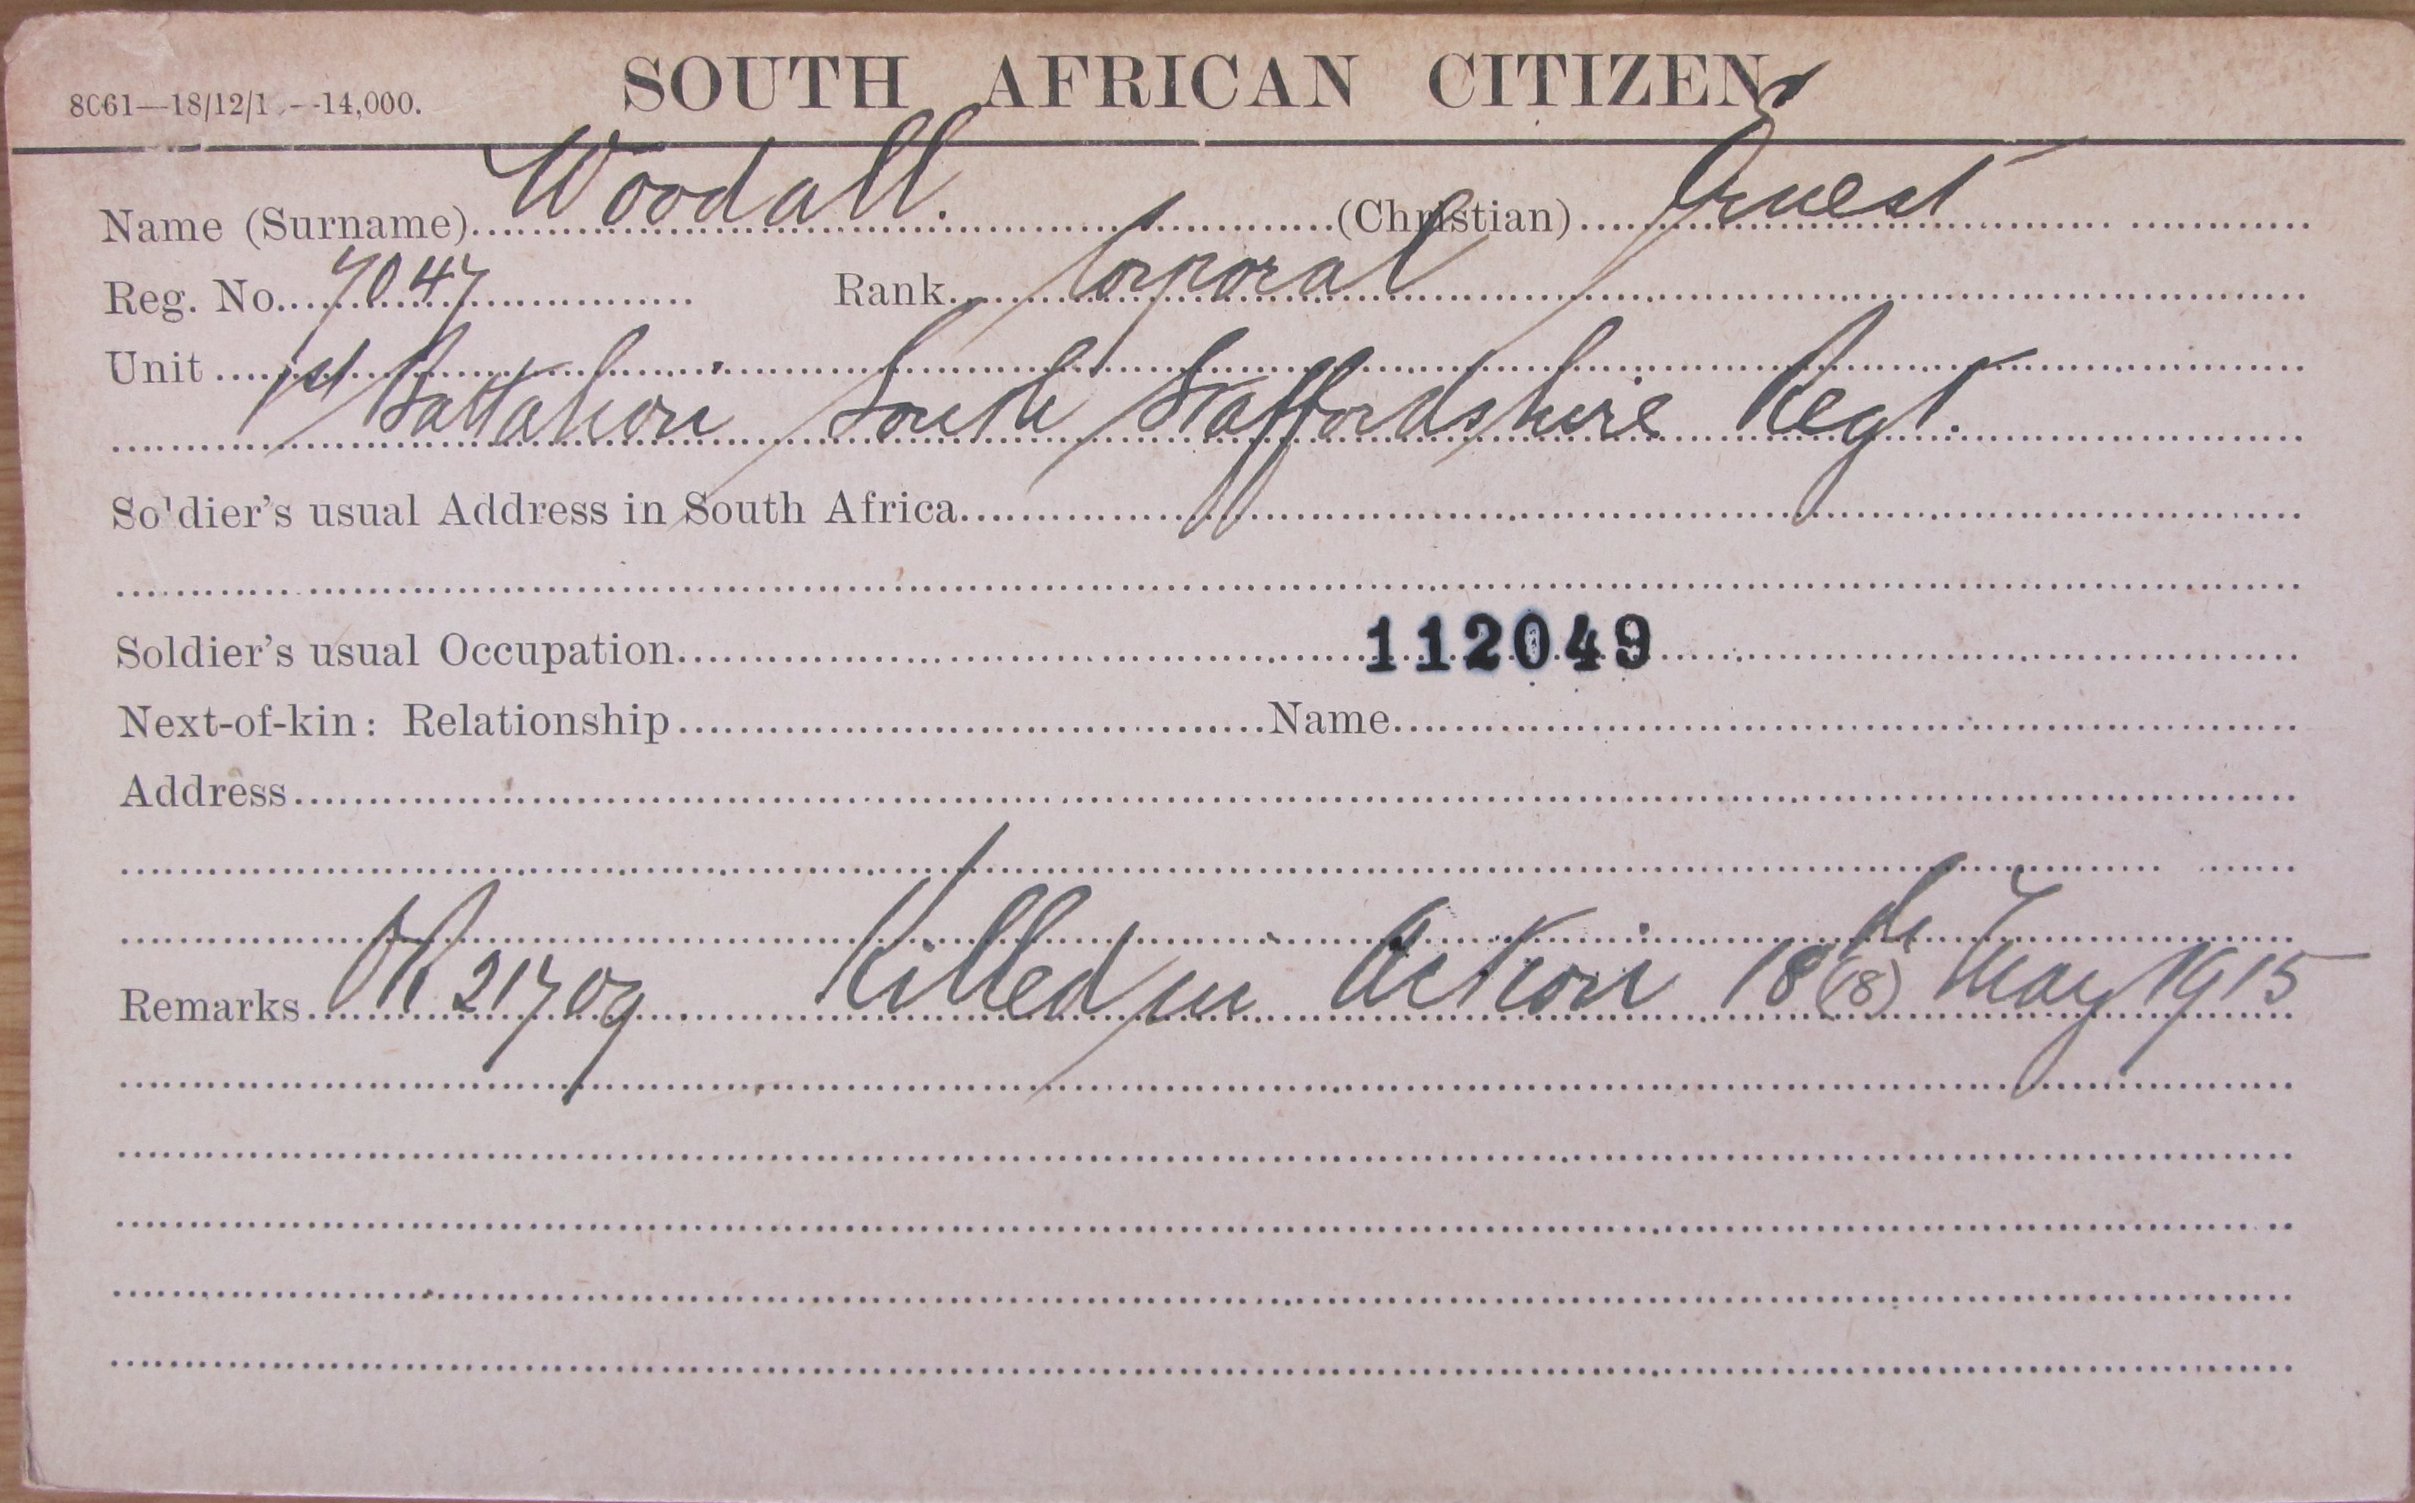 8061—18/12/1 -14,000.
SOUTH AFRICAN CITIZEN
Name (Surname) Woodall. (Christian) Ernest
Reg. No. 7047 Rank Corporal
Unit 1st Battalion South Staffordshire Regt.
Soldier's usual Address in South Africa
Soldier's usual Occupation 112049
Next-of-kin: Relationship Name
Address
Remarks OR 21709 Killed in Action 18th (18) May 1915